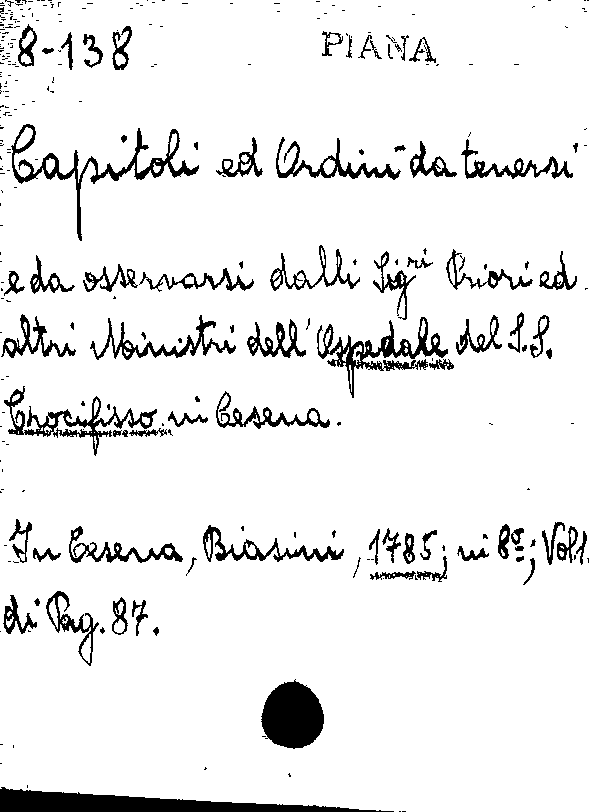 8-138 PIANA
Capitoli ed Ordini da tenersi
e da osservarsi dalli Sigri Priori ed
altri Ministri dell'Ospedale del S.S.
Crocifisso in Cesena.
In Cesena, Biasini, 1785; in 8º; Vol 1.
di Pag. 87.